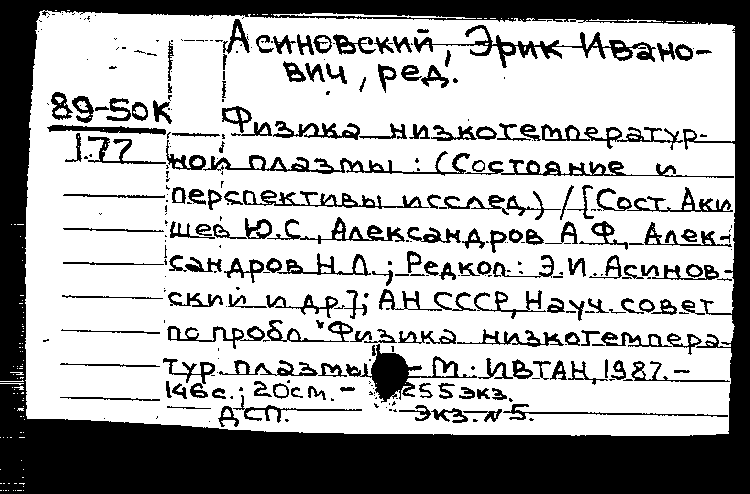 Асиновский, Эрик Ивано-
вич, ред.
89-50К
177
Физика низкотемператур-
ной плазмы : (Состояние и
перспективы исслед.) / [Сост. Аки
шев Ю.С., Александров А.Ф., Алек-
сандров Н.Л.; Редкол.: Э.И. Асинов-
ский и др.]; АН СССР, Науч. совет
по пробл. "Физика низкотемпера-
тур. плазмы - М.: ИВТАН, 1987. -
146 с.; 20 см. - 255 экз.
ДСП. Экз. N 5.